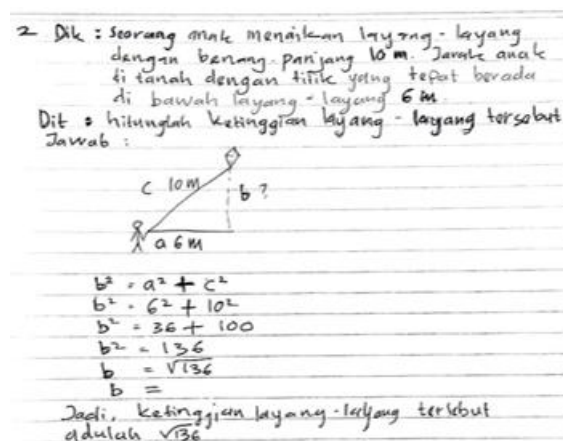 2 Dik : Seorang anak menaikan layang-layang
dengan benang panjang 10 m. Jarak anak
di tanah dengan titik yang tepat berada
di bawah layang-layang 6 m
Dit : hitunglah ketinggian layang-layang tersebut
Jawab :
c 10m
b ?
a 6 m
b² = a² + c²
b² = 6² + 10²
b² = 36 + 100
b² = 136
b = √136
b =
Jadi, ketinggian layang-layang terlebut
adulah √136